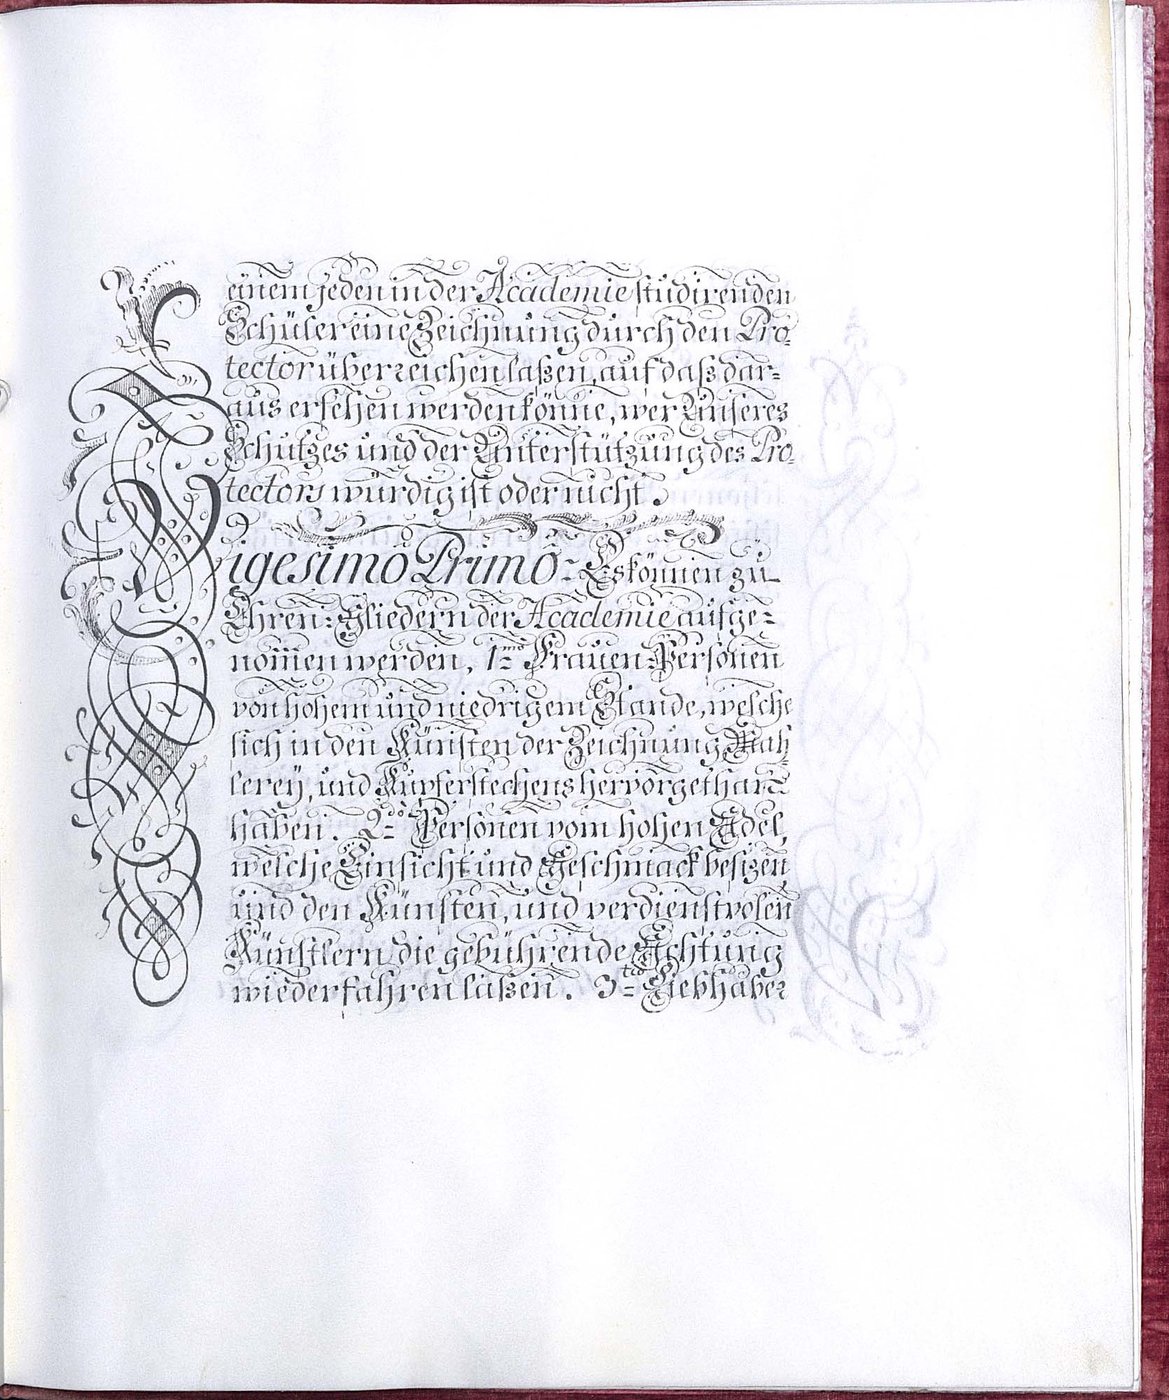 einem jeden in der Academie studirenden
Schüler eine Zeichnung durch den Pro-
tector überreichen laßen, auf daß dar-
aus ersehen werden könne, wer Unseres
Schutzes und der Unterstützung des Pro-
tectors würdig ist oder nicht.
Vigesimo Primo- Es können zu
Ehren-Gliedern der Academie aufge-
nom̄en werden, 1mo Frauen-Personen
von hohem und niedrigem Stande, welche
sich in den Künsten der Zeichnung Mah-
lerey, und Kupferstechens hervorgethan
haben. 2do Personen vom hohen Adel,
welche Einsicht und Geschmack besizen
und den Künsten, und verdienstvolen
Künstlern die gebührende Achtung
wiederfahren laßen. 3tio Liebhaber